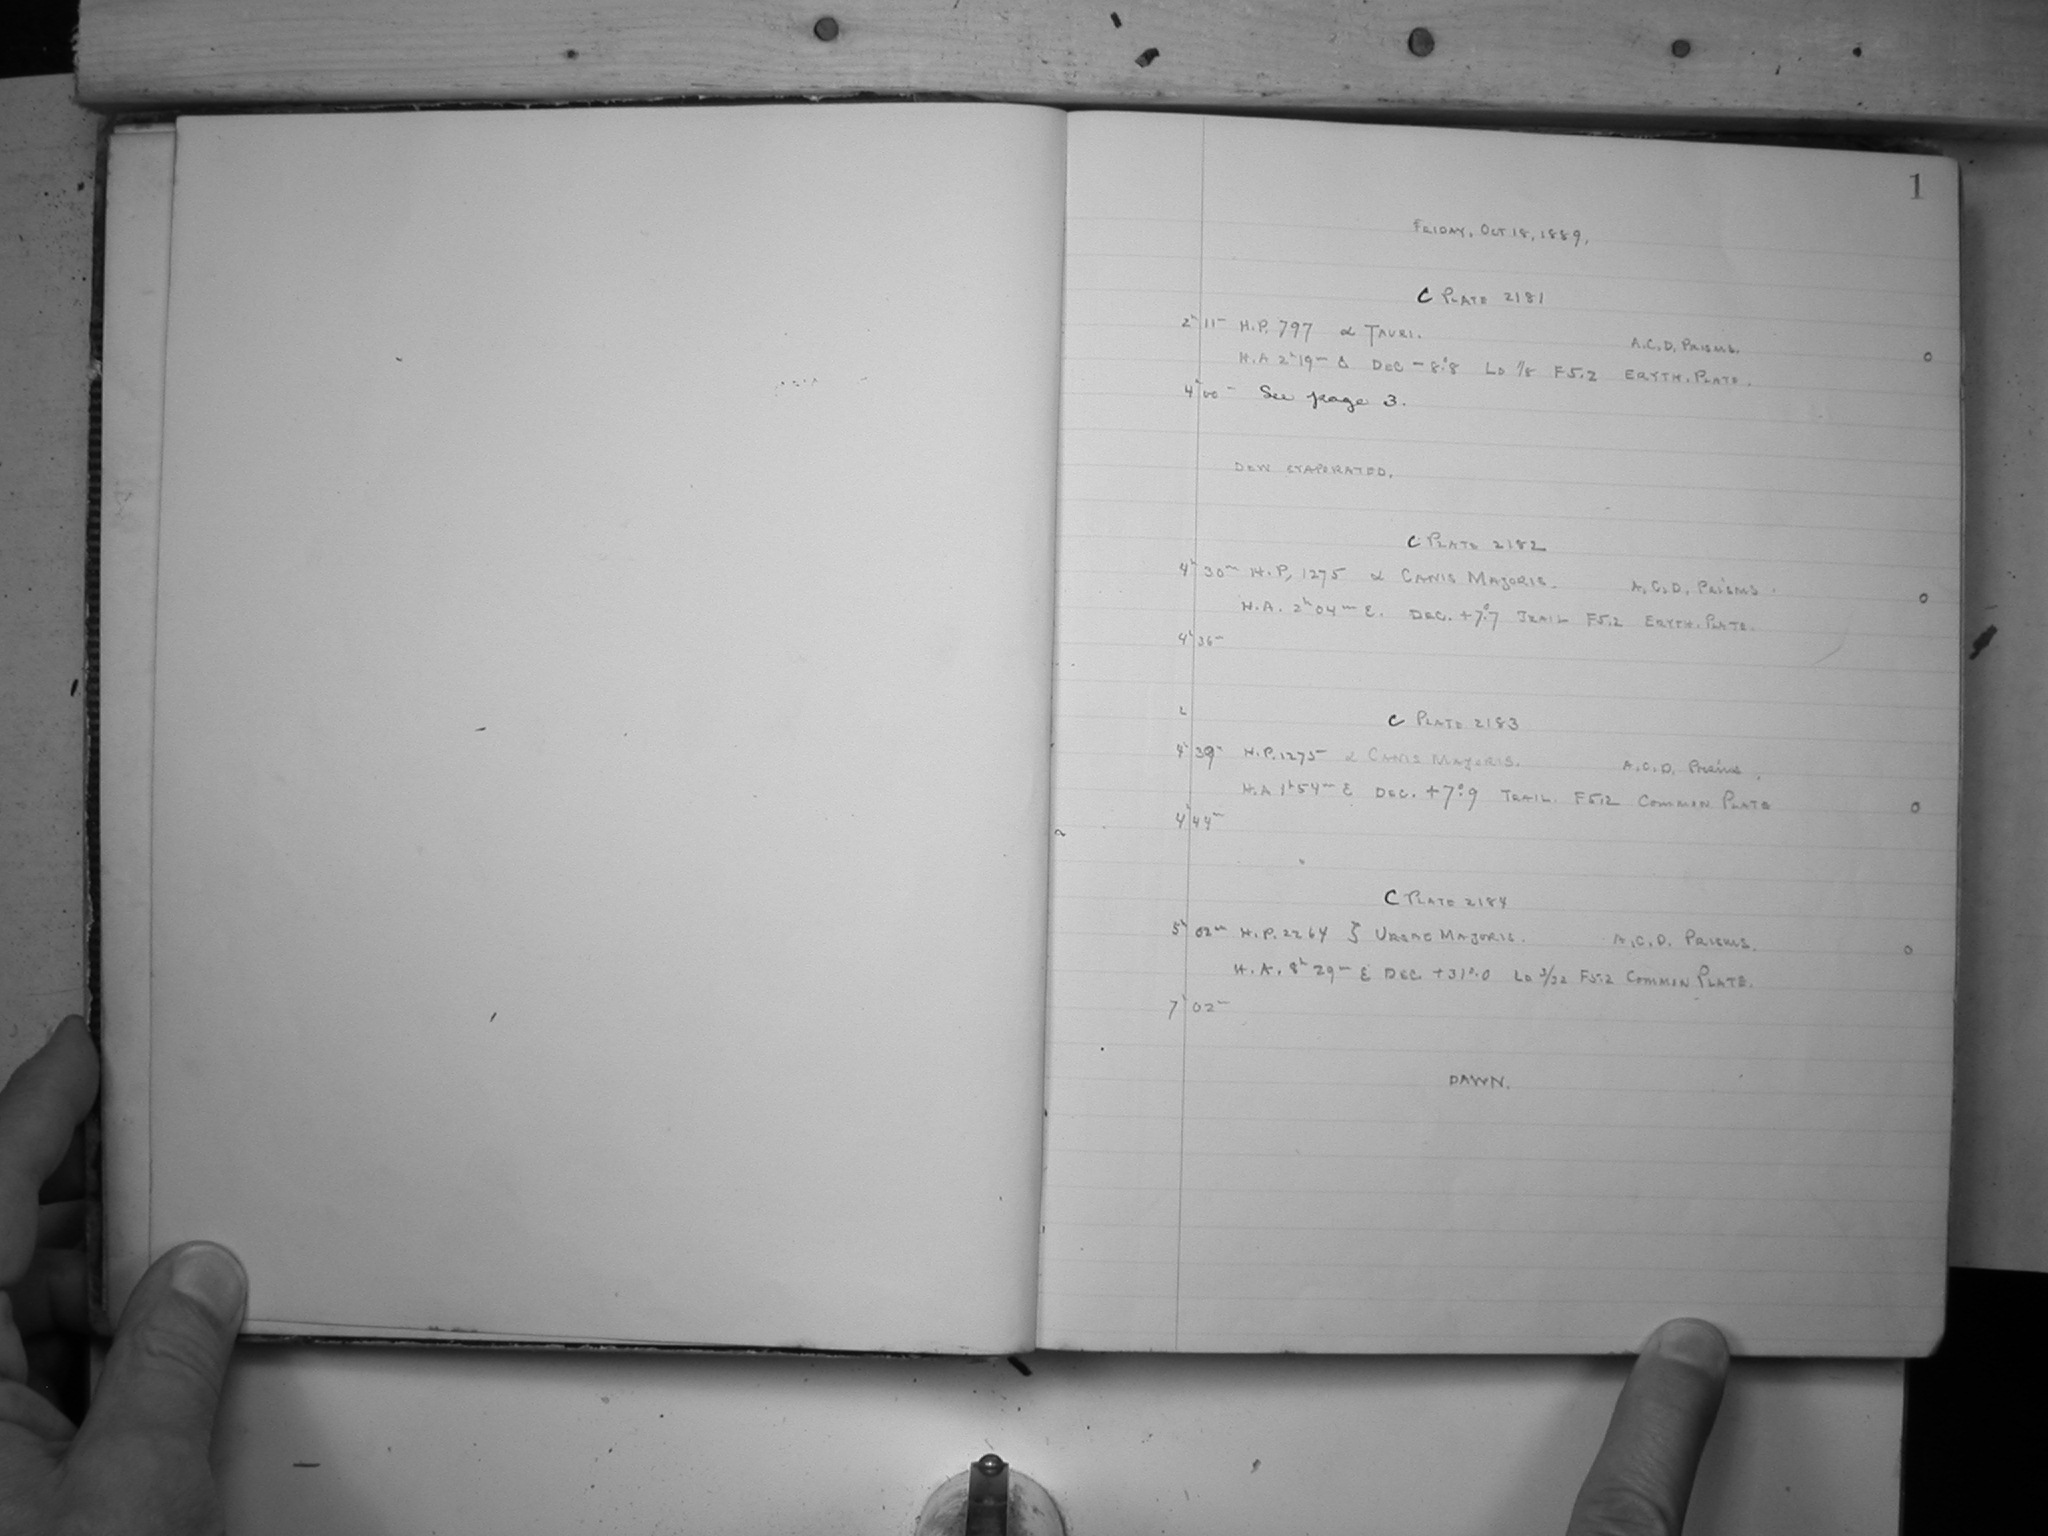 1
FRIDAY, OCT 18, 1889,
C PLATE 2181
2h 11m H.P. 797 α TAURI. A.C.D. PRISMS.
H.A 2h 19m E DEC -8°.8 LD 1/8 F5.2 ERYTH. PLATE.
4h 00m See page 3.
DEW EVAPORATED.
C PLATE 2182
4h 30m H.P. 1275 α CANIS MAJORIS. A.C.D. PRISMS.
H.A. 2h 04m E. DEC. +7°.7 TRAIL F5.2 ERYTH. PLATE.
4h 36m
C PLATE 2183
4h 39m H.P. 1275 α CANIS MAJORIS. A.C.D. PRISMS.
H.A 1h 54m E DEC. +7°.9 TRAIL. F5.2 COMMON PLATE
4h 44m
C PLATE 2184
5h 02m H.P. 2264 ζ URSAE MAJORIS. A.C.D. PRISMS.
H.A. 8h 29m E DEC. +31°.0 LD 3/32 F5.2 COMMON PLATE.
7h 02m
DAWN.